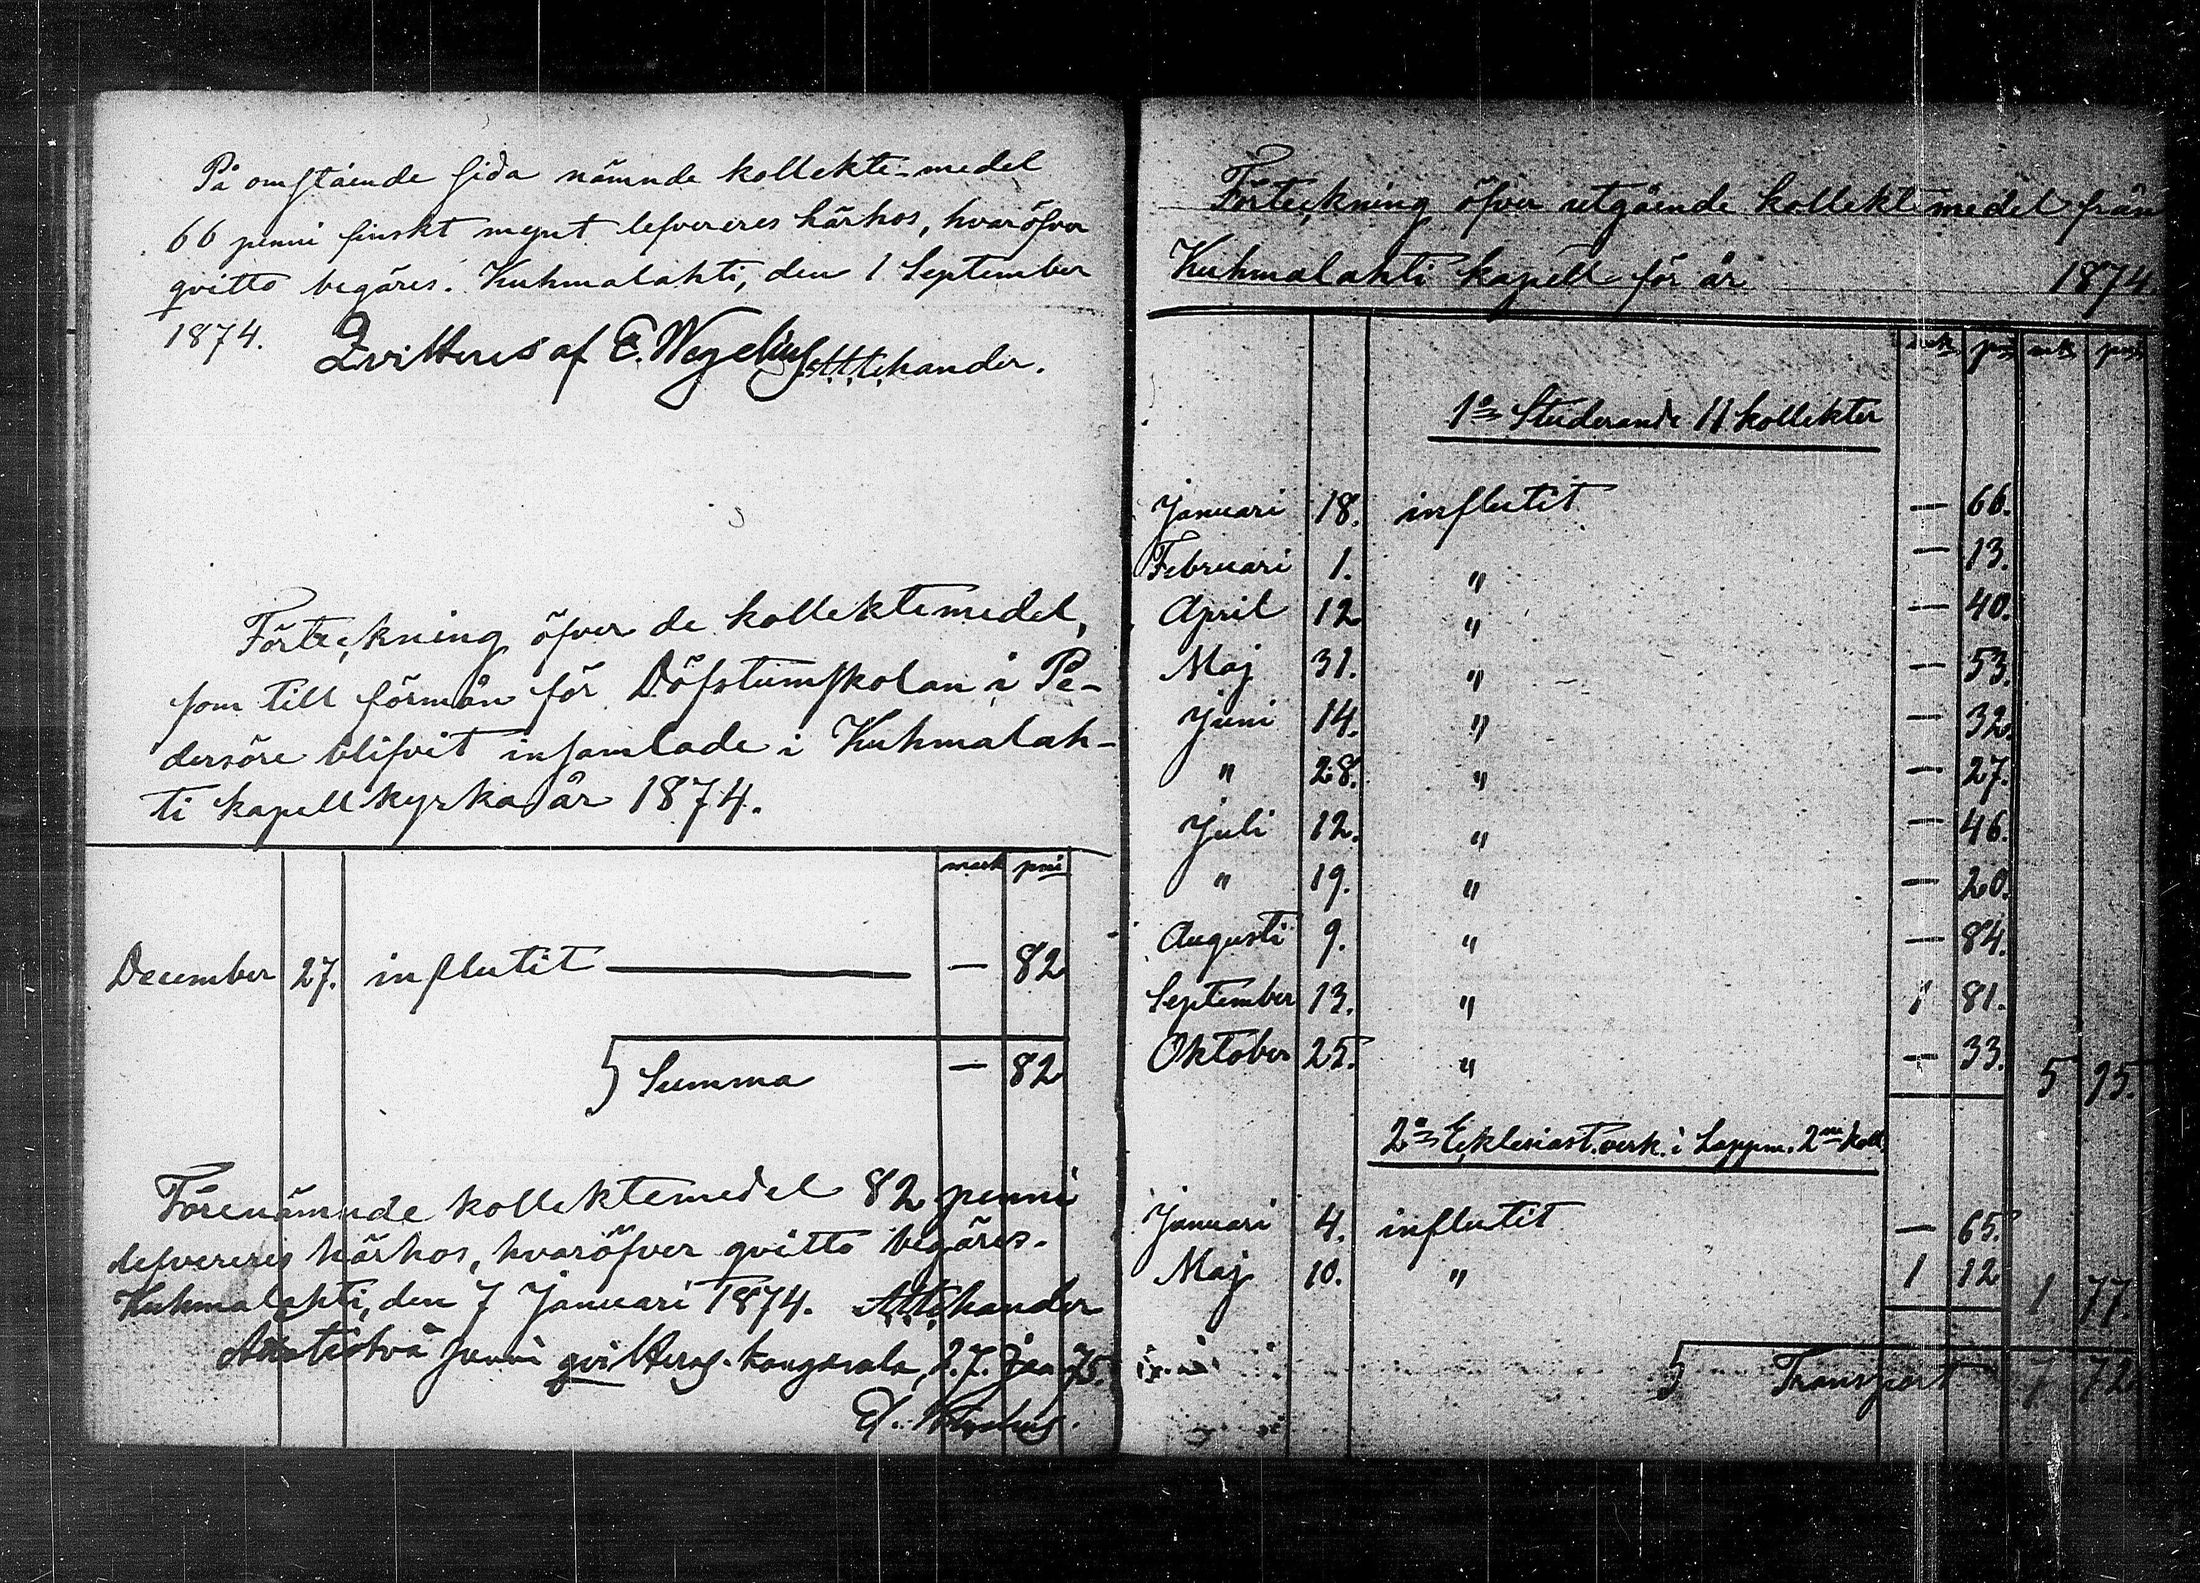 På omstående sida nämnde kollekte-medel
66 penni finskt mynt lefvereres härhos, hvaröfver
qvitto begäres. Kuhmalahti, den 1 September
1874.
Qvitteres af E. Wegelius
Förteckning öfver de kollektemedel,
som till förmån för Döfstumskolan i Pe-
dersöre blifvit insamlade i Kuhmalah-
ti kapellkyrka år 1874.
mark pni
December 27. influtit — 82
Summa — 82
Förenämnde kollektemedel 82 penni
lefvereres härhos, hvaröfver qvitto begäres.
Kuhmalahti, den 7 Januari 1874.
Åttatiotvå penni qvitteras. Kangasala, d. 7. Jan 75.
Förteckning öfver utgående kollektmedel från
Kuhmalahti kapell för år 1874.
mk pi mk pi
1:o Studerande 11 kollekter
Januari 18. influtit — 66.
Februari 1. " — 13.
April 12 " — 40.
Maj 31. " — 53.
Juni 14. " — 32.
" 28. " — 27.
Juli 12. " — 46.
" 19. " — 20.
Augusti 9. " — 84.
September 13. " 1 81.
Oktober 25. " — 33. 5 95.
2:o Ecklesiast. verk. i Lappm. 2ne koll.
Januari 4. influtit — 65.
Maj 10. " 1 12 1 77.
Transport 7 72